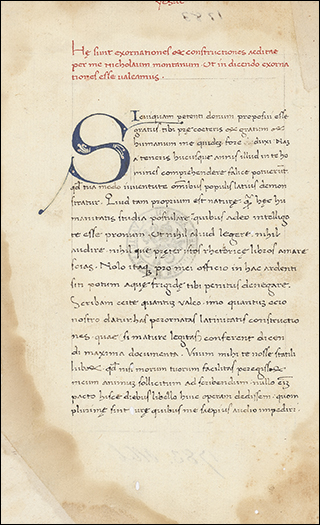 Hę sunt exornationes & constructiones aeditae
per me Nicholaum montanum. Ut in dicendo exorna
tiores esse valeamus.
Si cuiquam petenti donum proposui esse
gratus tibi pre coeteris & gratum &
humanum me quidem fore
a teneris hucusque annis illud in te ho
mines comprehendere facile potuerunt
qd tua modo iuventute omnibus populis latius demon
stratur. Quid tam proprium est naturę q hęc hu
manitatis studia postulare quibus adeo intelligo
te esse pronum. Ut nihil aliud legere nihil
audire nihil que pręter istos rhetoricę libros amare
. Nolo itaq pro mei officio in hac ardenti
siti potum aquę frigidę tibi penitus denegare.
Scribam certe quantum valeo. imo quantum ocio
nostro dabitur has perornatas latinitatis constructio
nes. quae si mature legitas conferent dicen
di maxima documenta. Unum mihi te nosse
qd nisi morum tuorum facilitas
meum animum sollicitum ad scribendum nullo
pacto hisce diebus libello huic operam dedissem. quom
plurimę sint quibus me saepius audio impediri.